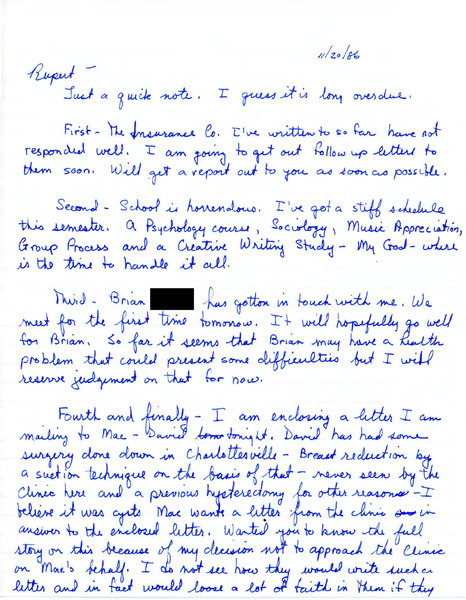 11/20/86
Rupert –
Just a quick note. I guess it is long overdue.
First – The Insurance Co. I've written to so far have not
responded well. I am going to get out follow up letters to
them soon. Will get a report out to you as soon as possible.
Second – School is horrendous. I've got a stiff schedule
this semester. A Psychology course, Sociology, Music Appreciation,
Group Process and a Creative Writing Study – My God – where
is the time to handle it all.
Third – Brian has gotton in touch with me. We
meet for the first time tomorrow. It will hopefully go well
for Brian. So far it seems that Brian may have a health
problem that could present some difficulties but I will
reserve judgement on that for now.
Fourth and finally – I am enclosing a letter I am
mailing to Mac – David tonight. David has had some
surgery done down in Charlottesville – Breast reduction by
a suction technique on the basis of that – never seen by the
Clinic here and a previous hysterectomy for other reasons – I
believe it was cysts Mac wants a letter from the clinic in
answer to the enclosed letter. Wanted you to know the full
story on this because of my decision not to approach the Clinic
on Mac's behalf. I do not see how they would write such a
letter and in fact would loose a lot of faith in them if they